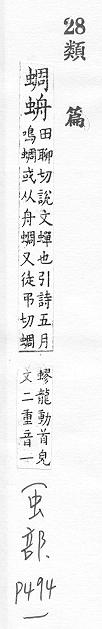 28
類
篇
蜩蛧田聊切說文蟬也引詩五月
鳴蜩或从舟蜩又徒弔切蜩
蟉龍動首皃
文二重音一
(虫部
P494